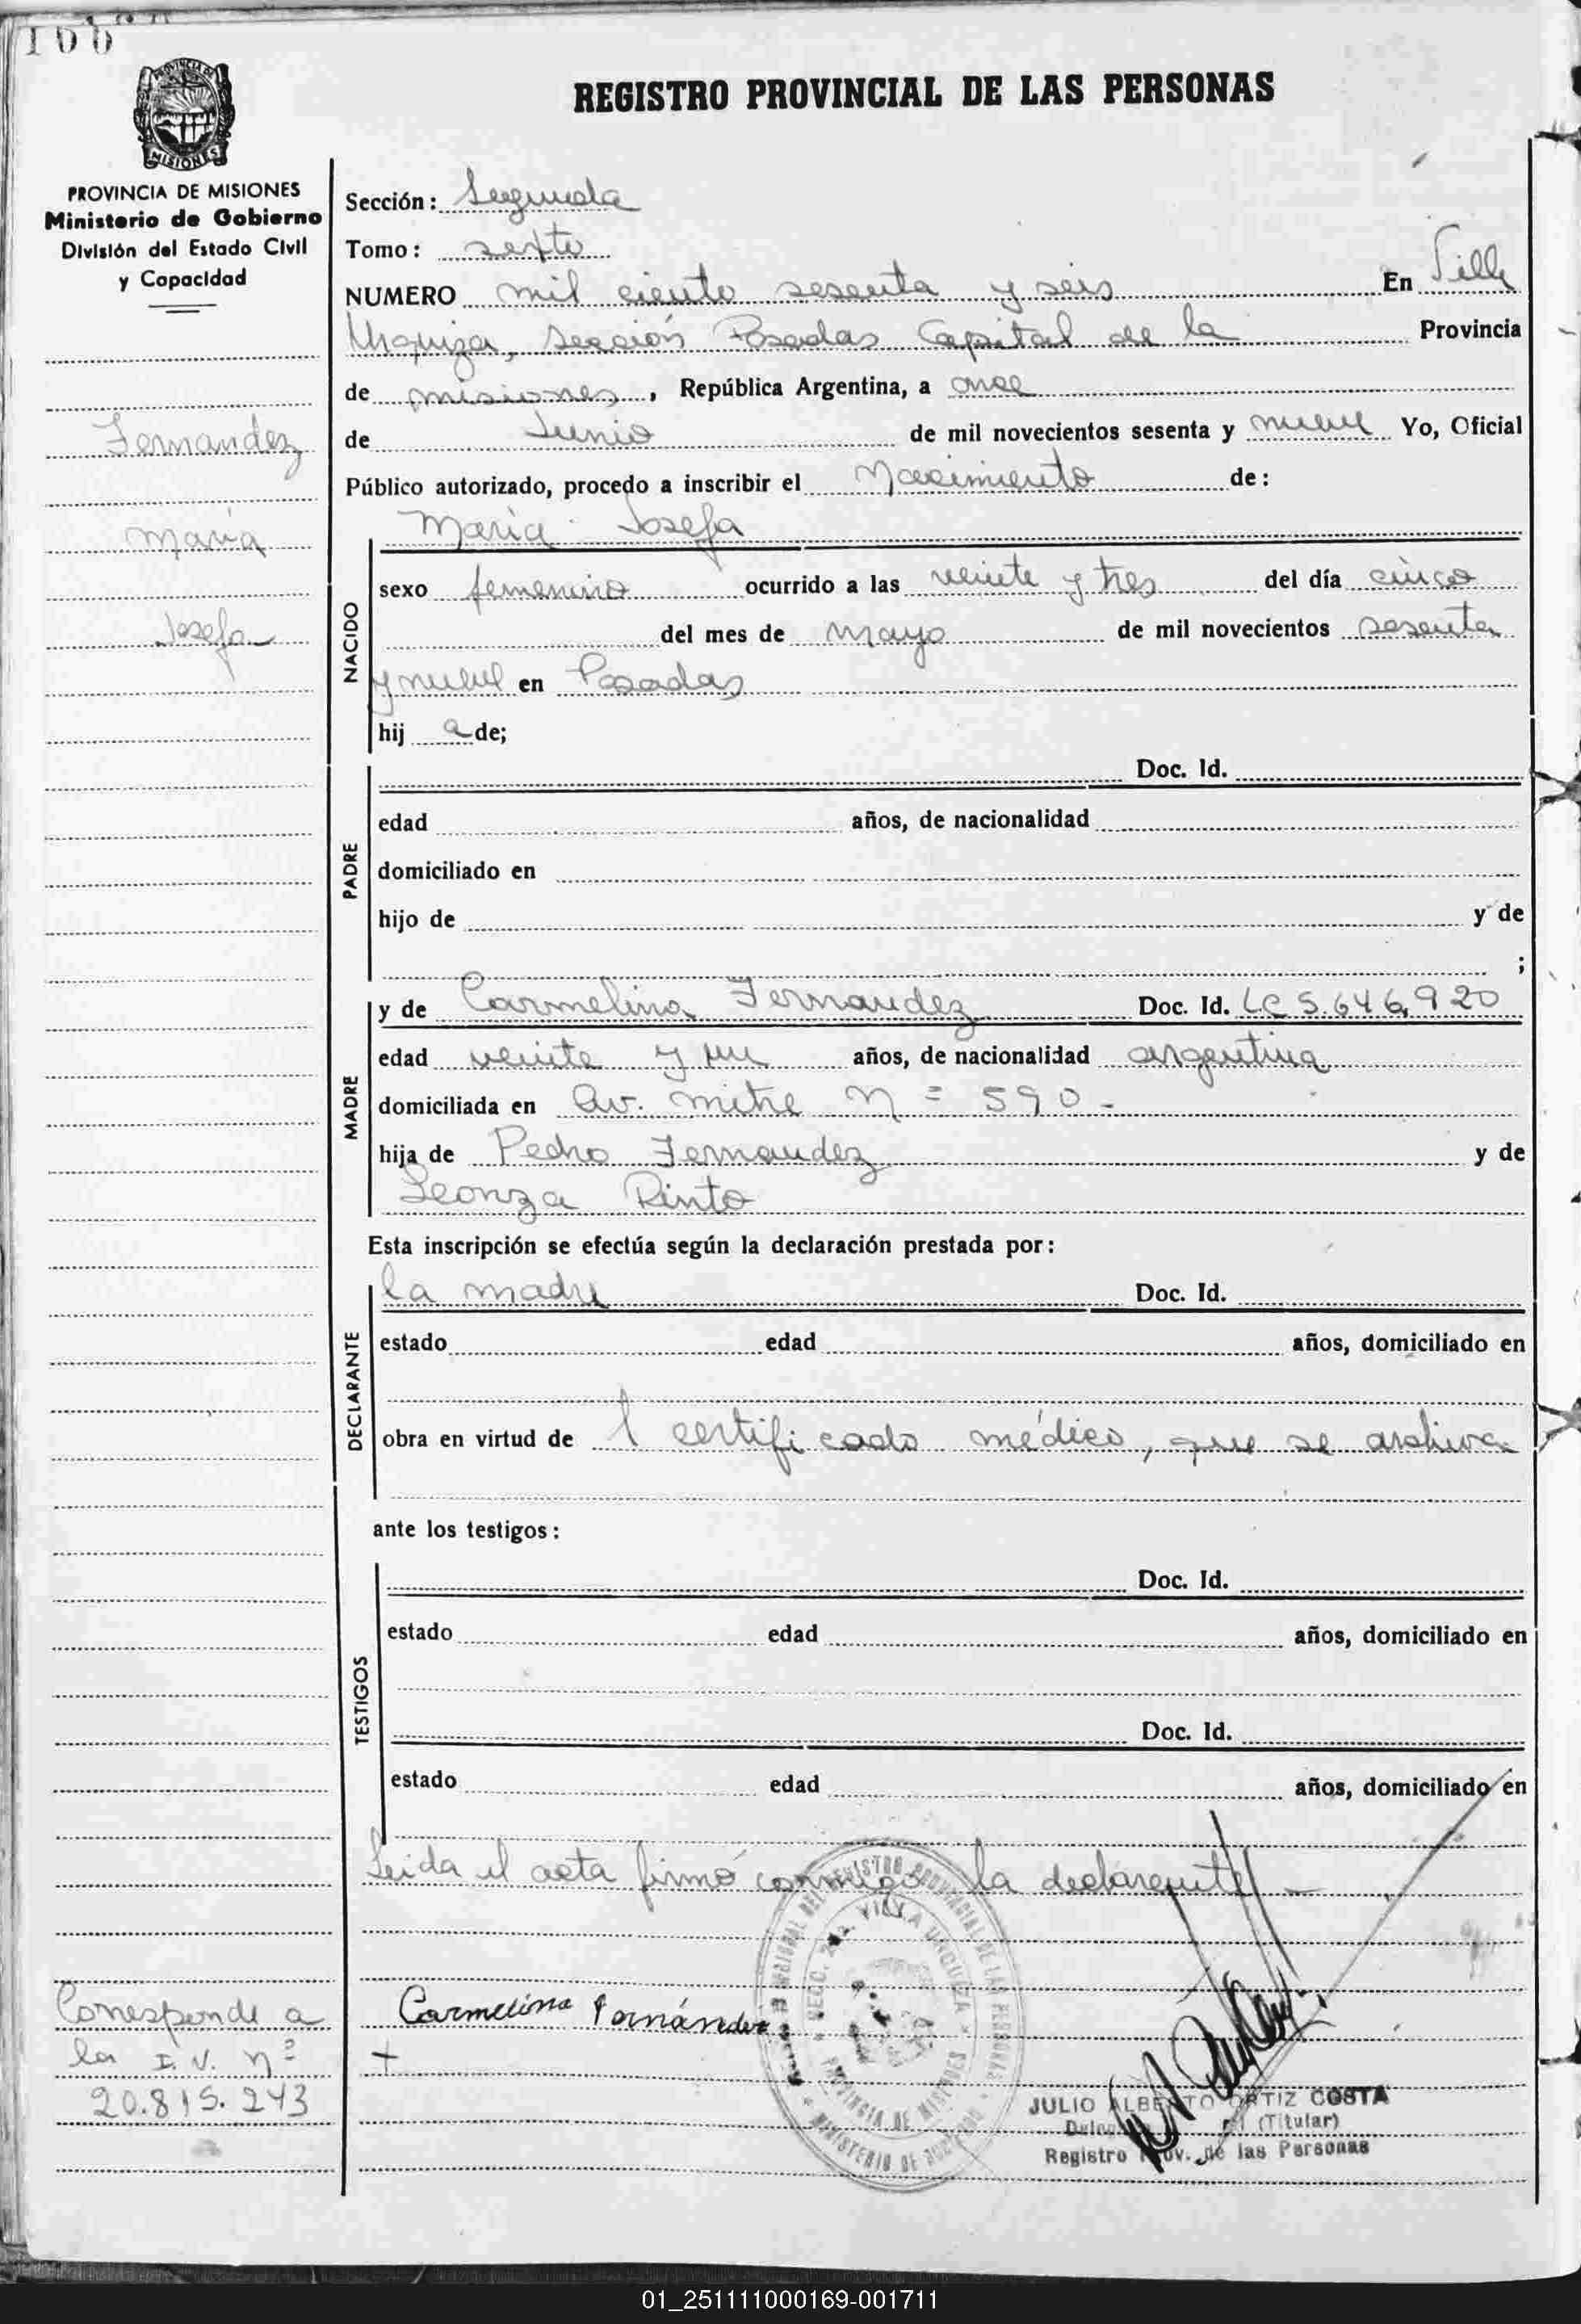 166
REGISTRO PROVINCIAL DE LAS PERSONAS
PROVINCIA DE
MISIONES
PROVINCIA DE MISIONES
Ministerio de Gobierno
División del Estado Civil
y Capacidad
Fernandez
maria
Josefa
Sección: Segunda
Tomo: sexto
NUMERO mil ciento sesenta y seis En Villa
Urquiza, sección Posadas Capital de la Provincia
de misiones, República Argentina, a once
de Junio de mil novecientos sesenta y nueve Yo, Oficial
Público autorizado, procedo a inscribir el Nacimiento de:
Maria Josefa
NACIDO
sexo femenino ocurrido a las veinte y tres del día cinco
del mes de mayo de mil novecientos sesenta
y nueve en Posadas
hij a de;
PADRE
Doc. Id.
edad años, de nacionalidad
domiciliado en
hijo de y de
;
MADRE
y de Carmelina Fernandez Doc. Id. LC 5.646,920
edad veinte y un años, de nacionalidad argentina
domiciliada en Av. mitre N = 590 -
hija de Pedro Fernandez y de
Leonza Pinto
Esta inscripción se efectúa según la declaración prestada por:
DECLARANTE
la madre Doc. Id.
estado edad años, domiciliado en
obra en virtud de 1 certificado médico, que se archiva
ante los testigos:
TESTIGOS
Doc. Id.
estado edad años, domiciliado en
Doc. Id.
estado edad años, domiciliado en
Leida el acta firmó conmigo la declarante -
Carmelina Fernández
+
Corresponde a
la I. V. nº
20.815.243
REGISTRO PROVINCIAL DE LAS PERSONAS
SECC. 2da. VILLA URQUIZA
PROVINCIA DE MISIONES
MINISTERIO DE GOBIERNO
JULIO ALBERTO ORTIZ COSTA
(Titular)
Registro Prov. de las Personas
01_251111000169-001711